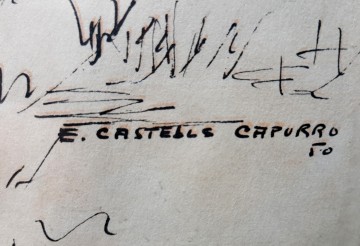 E. CASTELLS CAPURRO